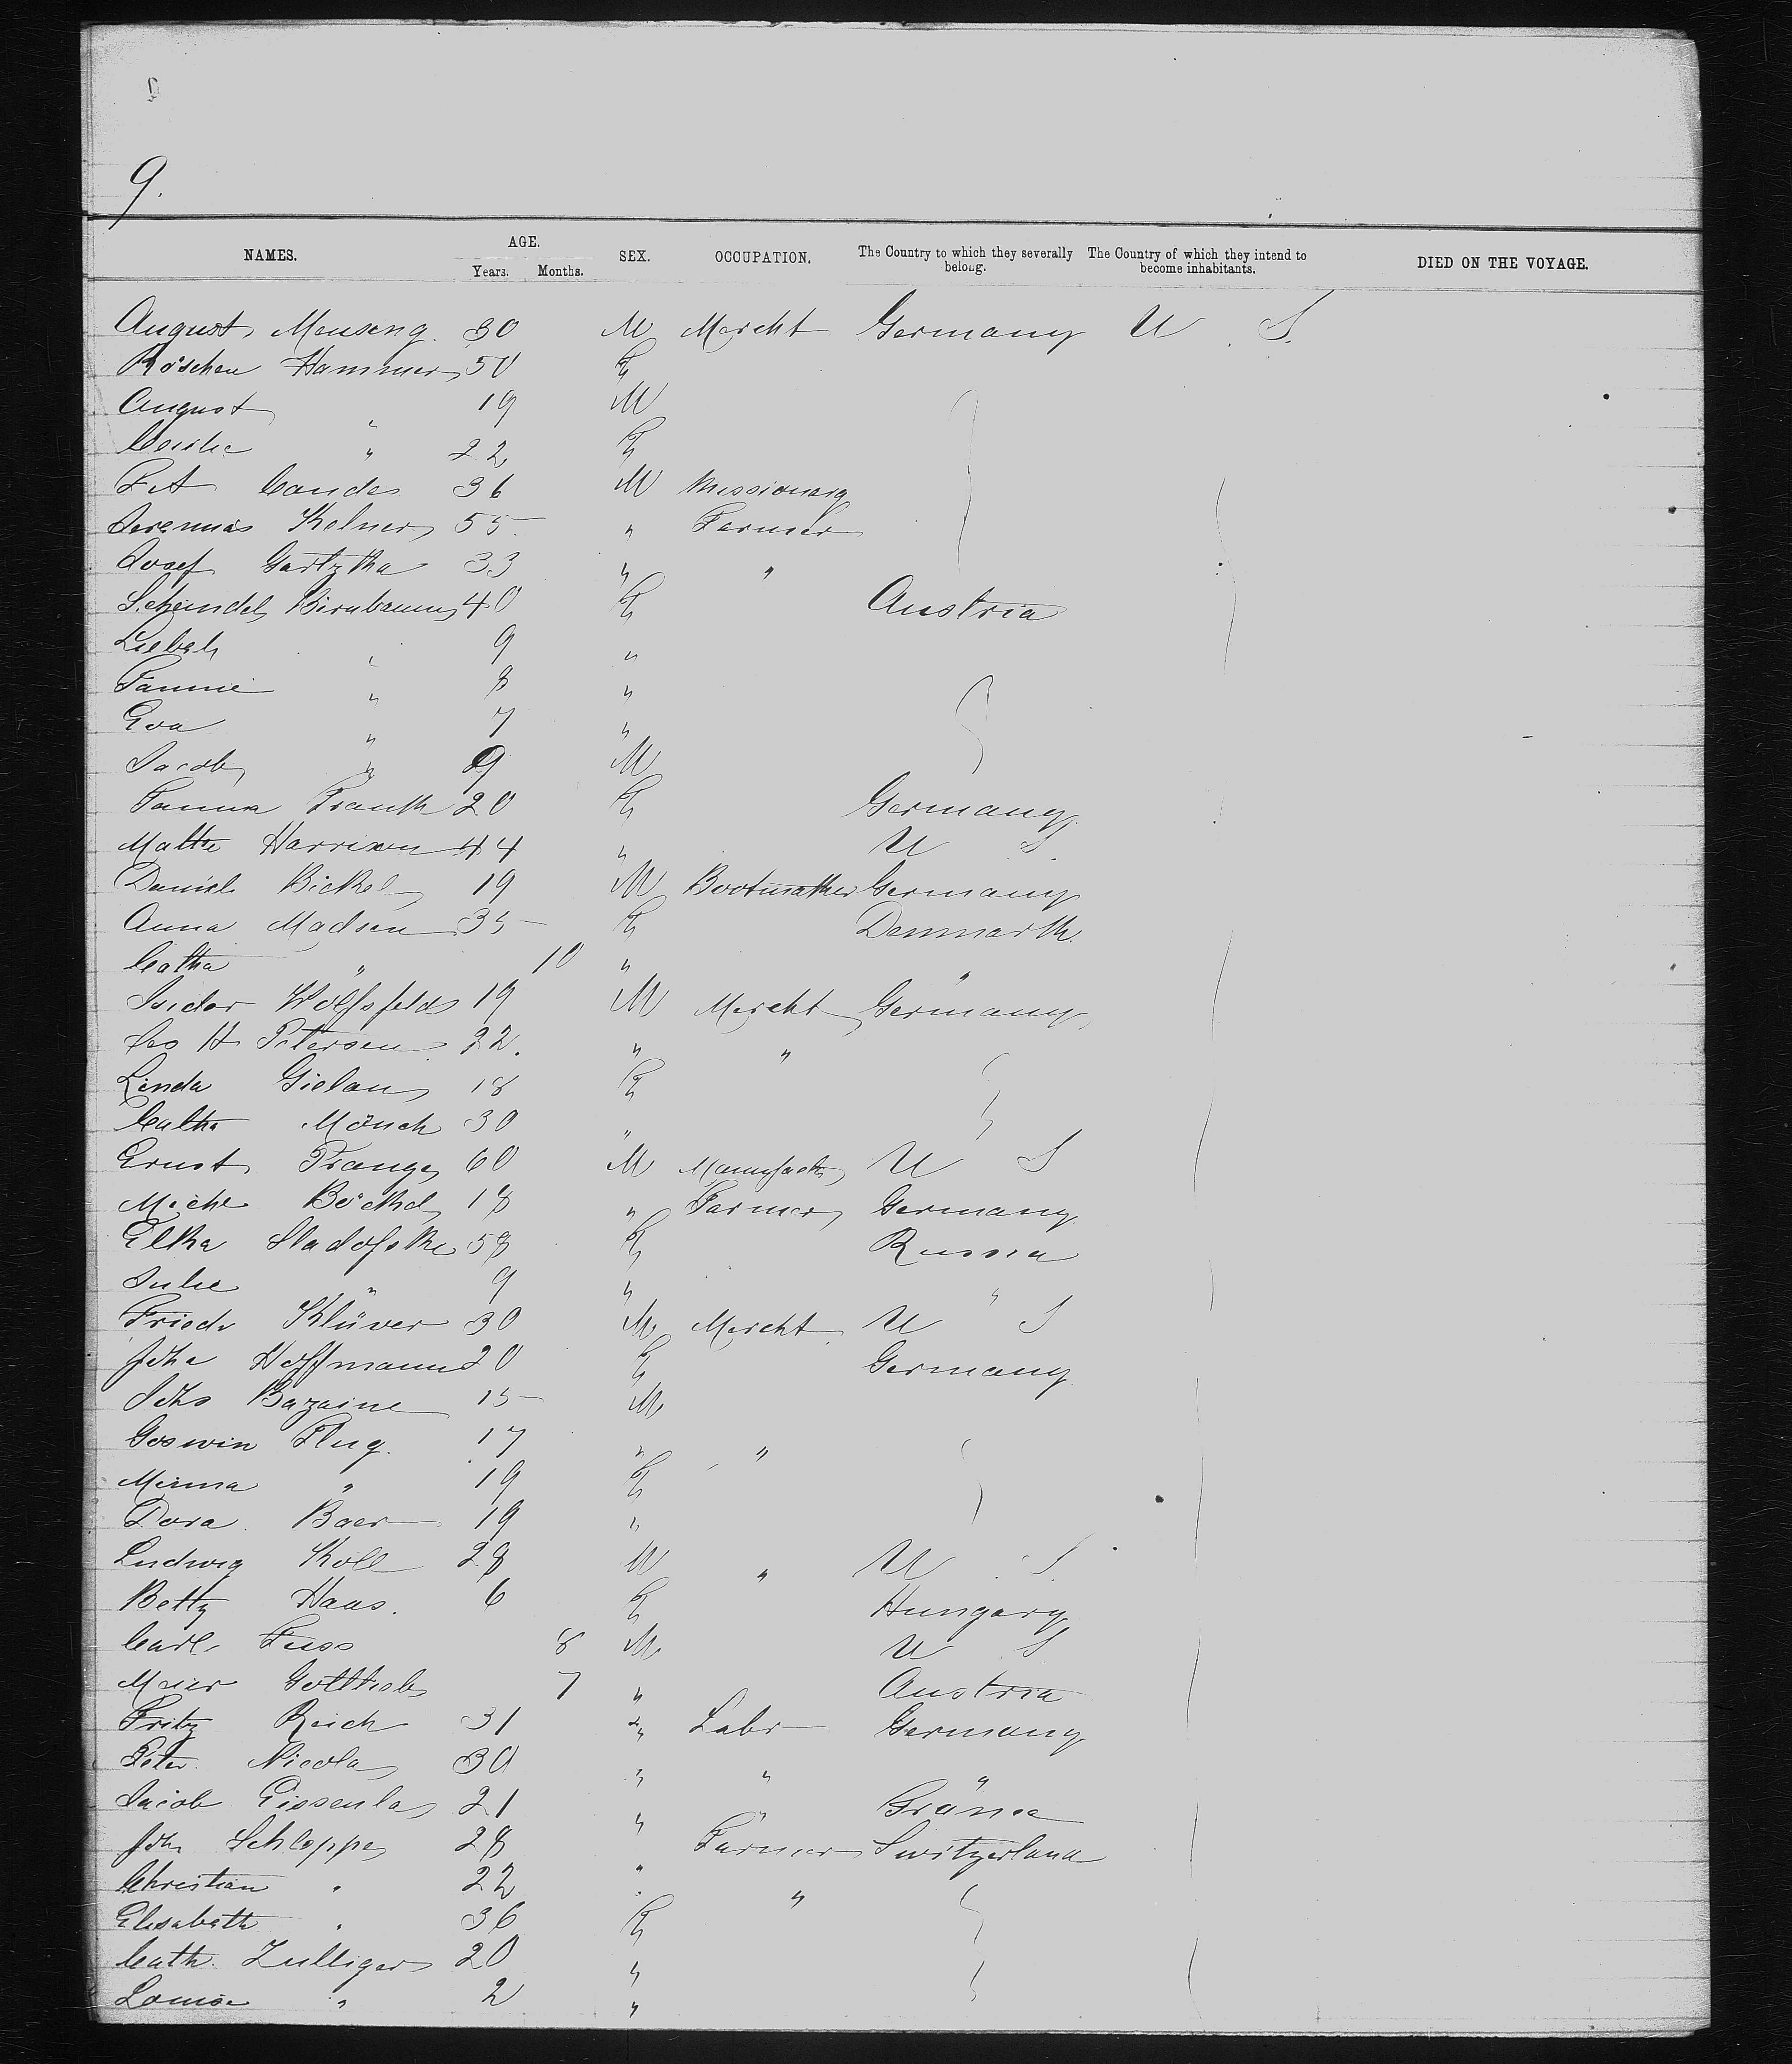 9.
NAMES. AGE. Years. Months. SEX. OCCUPATION. The Country to which they severally belong. The Country of which they intend to become inhabitants. DIED ON THE VOYAGE.
August Mensing 30 M Mercht Germany U S.
Röschen Hammer 50 F
August " 19 M
" 22 F
36 M Missionary
Jeremias Kelner 55 " Farmer
Josef 33 " "
Scheindel Birnbaum 40 F Austria
Liebeh " 9 "
Fannie " 8 "
Eva " 7 "
Jacob " 9 M
Fanna Frank 20 F Germany
Malke Harrison 44 " U S
Daniel Bickel 19 M Bootmaker Germany
Anna Madsen 35 F Denmark
Catha " 10 " "
Isidor Wolfsfeld 19 M Mercht Germany
Leo H Petersen 22. " "
Linda Gielau 18 F
Catha Mönch 30 "
Ernst Prange 60 M Manufactr U S
Miche Böckel 18 " Farmer Germany
Elka Sladofske 58 F Russia
Julie " 9 " "
Friedr Klüver 30 M Mercht U S
Johe Hoffmann 20 F Germany
Johs Bazaine 15 M
Goswin Plug. 17 " "
Minna " 19 F
Dora Baer 19 "
Ludwig Koll 28 M " U S
Betty Haas. 6 F Hungary
Carl Fuss 8 M U S
Meier Gottlieb 7 " Austria
Fritz Reich 31 " Labr Germany
Peter Nicola 30 " " "
Jacob 21 " "
Joh Schloppe 28 " Farmer Switzerland
Christian " 22 " "
Elisabeth " 36 F
Cath. Zulliger 20 "
Louise " 2 "